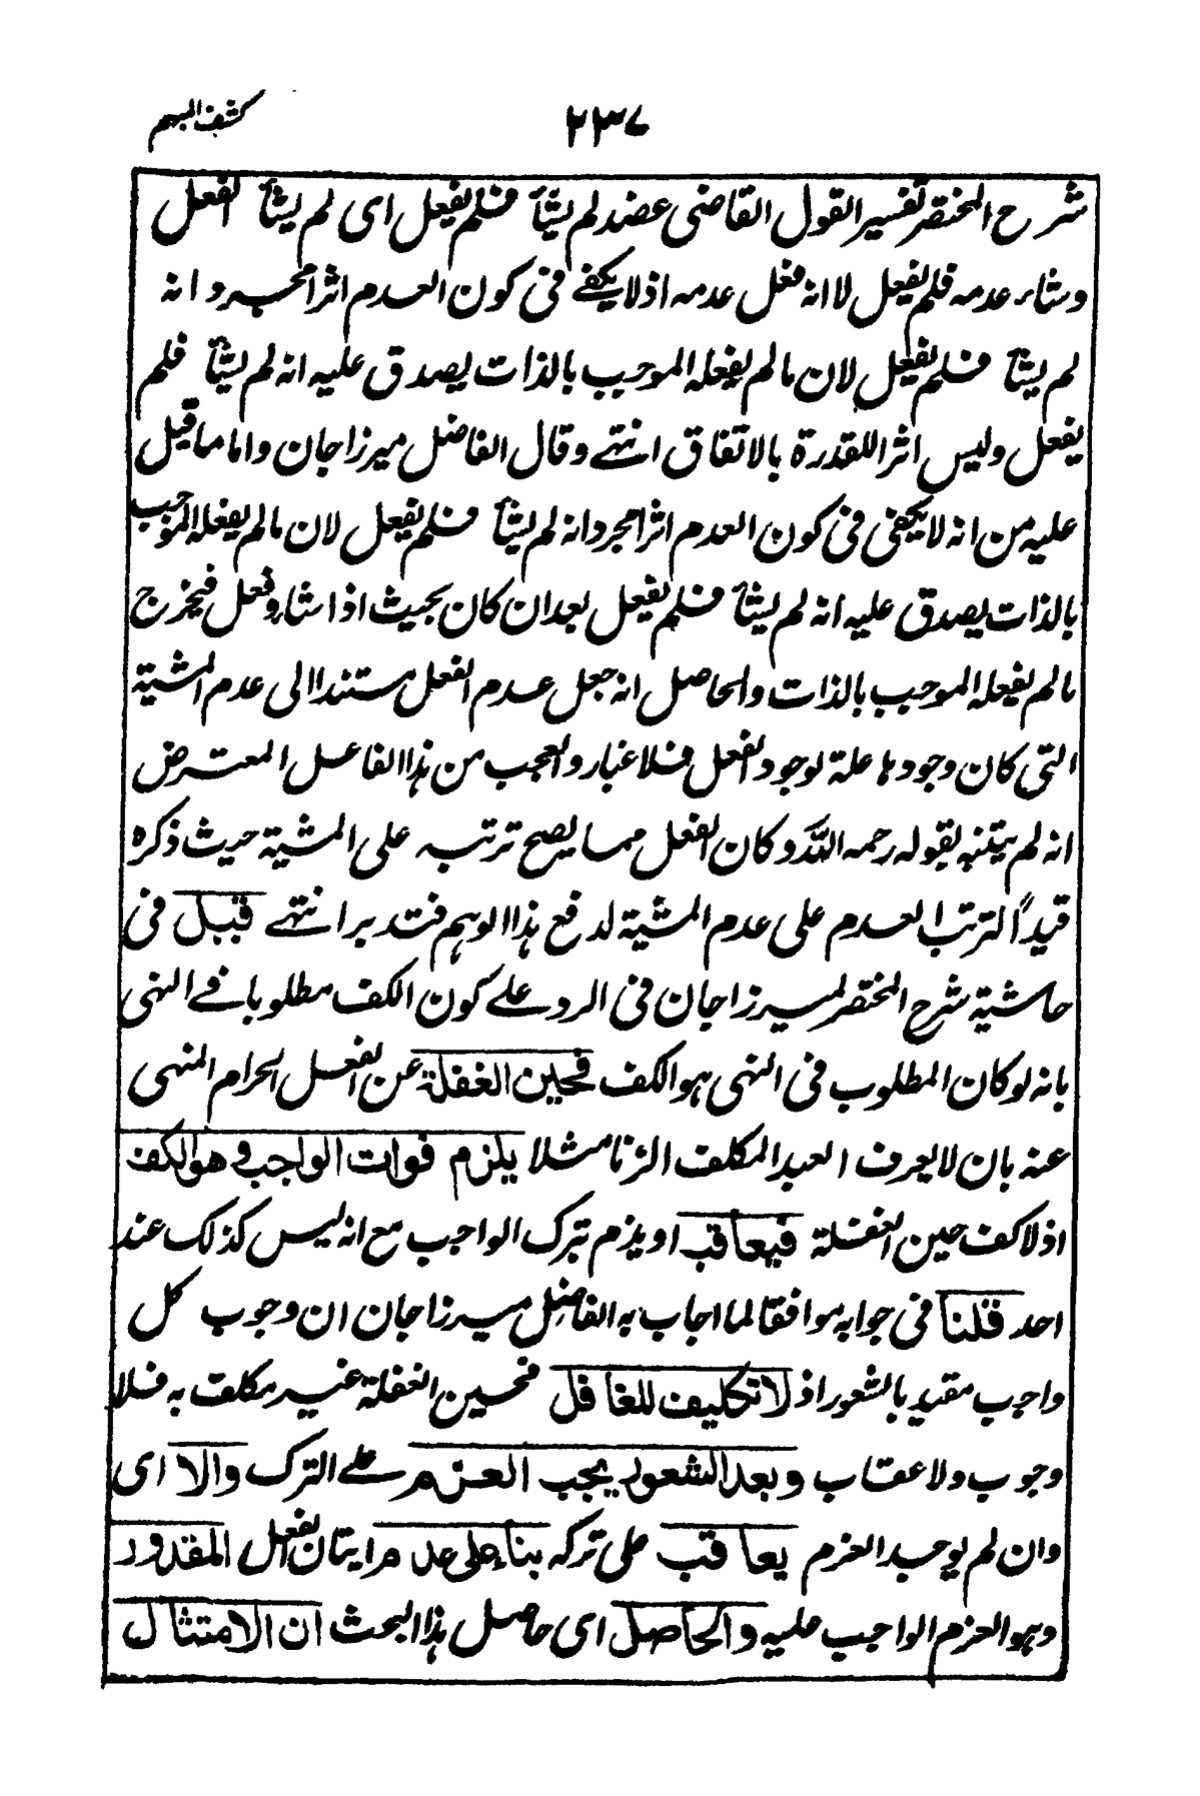 كشف المبهم
٢٣٧
شرح المختصر تفسير القول القاضى عضد لم يشأ فلم يفعل اى لم يشأ الفعل
وشاء عدمه فلم يفعل لا انه فعل عدمه اذ لا يكفے فى كون العدم اثرا مجرد انه
لم يشأ فلم يفعل لان ما لم يفعله الموجب بالذات يصدق عليه انه لم يشأ فلم
يفعل وليس اثرا للقدرة بالاتفاق انتهے وقال الفاضل ميرزا جان واما ما قيل
عليه من انه لا يكفى فى كون العدم اثرا مجرد انه لم يشأ فلم يفعل لان ما لم يفعله الموجب
بالذات يصدق عليه انه لم يشأ فلم يفعل بعد ان كان بحيث اذا شاء وفعل فيخرج
ما لم يفعله الموجب بالذات والحاصل انه جعل عدم الفعل مستندا الى عدم المشية
التى كان وجودها علة لوجود الفعل فلا غبار والعجب من هذا الفاعل المعترض
انه لم يتنبه بقوله رحمه الله وكان الفعل مما يصح ترتبه على المشية حيث ذكره
قيداً لترتب العدم على عدم المشية لدفع هذا الوهم فتدبر انتهے قيل فى
حاشية شرح المختصر لميرزا جان فى الرد علے كون الكف مطلوبا فے النهى
بانه لو كان المطلوب فى النهى هو الكف فحين الغفلة عن الفعل الحرام المنهى
عنه بان لا يعرف العبد المكلف الزنا مثلا يلزم فوات الواجب وهو الكف
اذ لا كف حين الغفلة فيعاقب اويذم بترك الواجب مع انه ليس كذلك عند
احد قلنا فى جوابه موافقا لما اجاب به الفاضل ميرزا جان ان وجوب كل
واجب مقيد بالشعور اذ لا تكليف للغافل فحين الغفلة غير مكلف به فلا
وجوب ولا عقاب وبعد الشعور يجب العزم علے الترك والا اى
وان لم يوجد العزم يعاقب على تركه بناء على عدم ايتان الفعل المقدور
وهو العزم الواجب عليه والحاصل اى حاصل هذا البحث ان الامتثال